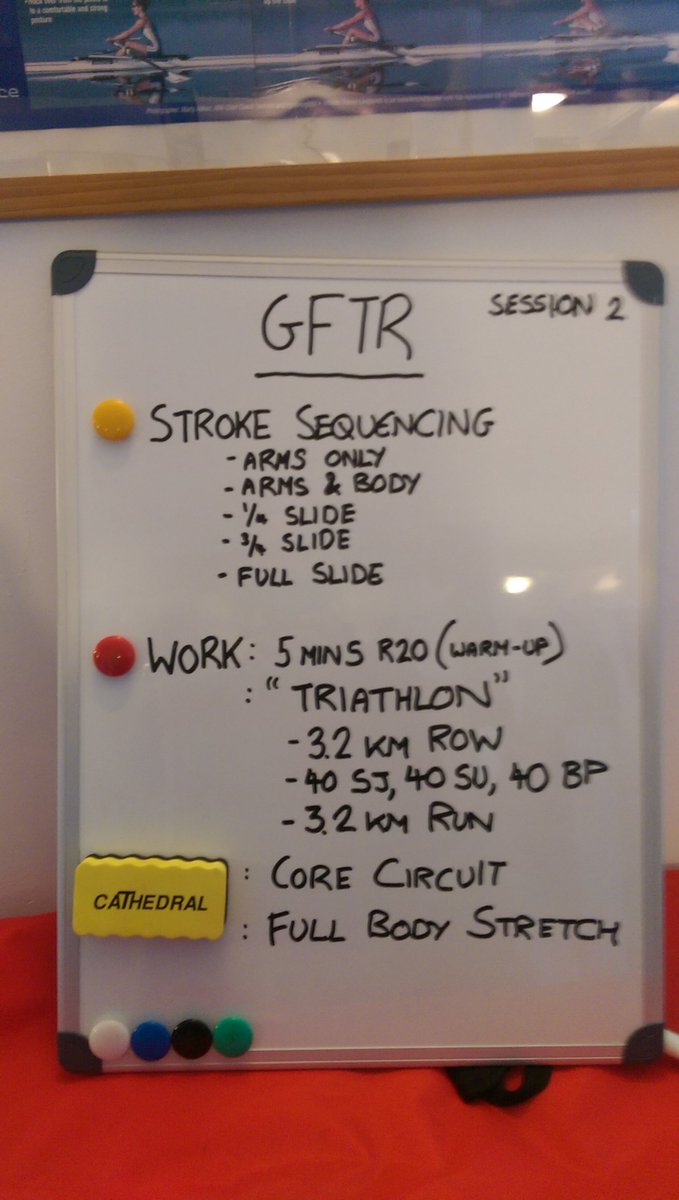 to a comfortable and strong
posture
ce
GFTR
SESSION 2
STROKE SEQUENCING
- ARMS ONLY
- ARMS & BODY
- 1/4 SLIDE
- 3/4 SLIDE
- FULL SLIDE
WORK: 5 MINS R20 (WARM-UP)
: "TRIATHLON"
- 3.2 KM ROW
- 40 SJ, 40 SU, 40 BP
- 3.2 KM RUN
: CORE CIRCUIT
CATHEDRAL
: FULL BODY STRETCH